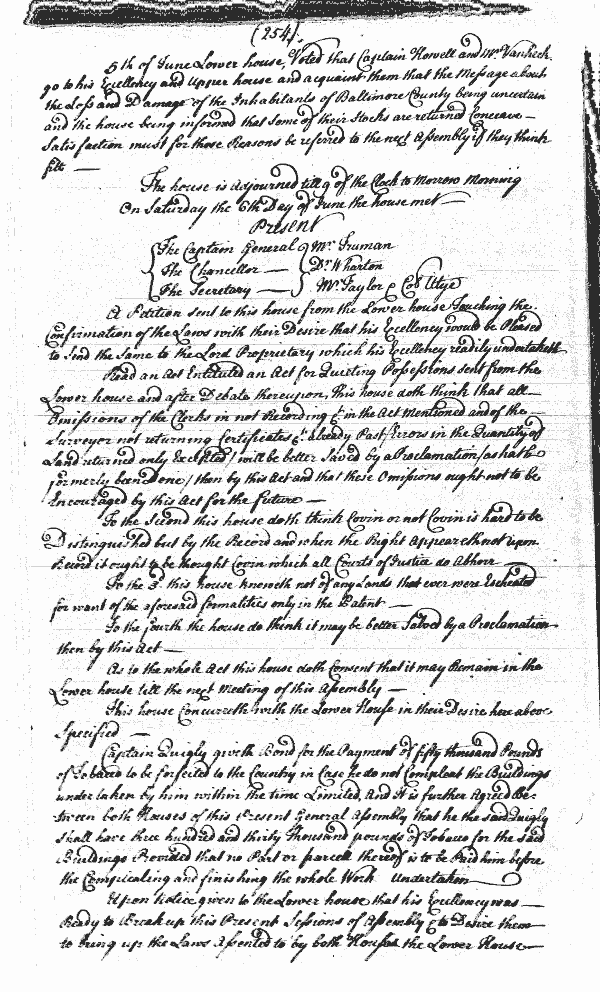 (254).
5th of June Lower house, Voted that Captain Howell and Mr. Vanheck
go to his Excellency and Upper house and acquaint them that the Message about
the Loss and Damage of the Inhabitants of Baltimore County being uncertain
and the house being informed that some of their Stocks are returned Conceave —
Satisfaction must for those Reasons be referred to the next Assembly if they think
fitt —
The house is adjourned till 9 of the Clock to Morrow Morning
On Saturday the 6th Day of June the house met —
Present
The Captain General Mr. Truman
The Chancellor — Dr. Wharton
The Secretary — Mr. Taylor & Col Utye
A Petition sent to this house from the Lower house Touching the
Confirmation of the Laws with their Desire that his Excellency would be Pleased
to Send the Same to the Lord Proprietary which his Excellency readily undertaketh
Read an Act Entituled an Act for Quieting Possessions sent from the
Lower house and after Debate thereupon, This house doth think that all —
Omissions of the Clerks in not Recording &c in the Act Mentioned and of the —
Surveyor not returning Certificates &c. already Past / Errors in the Quantity of
Land returned only Excepted / will be better Salved by a Proclamation / as hath
formerly been done / then by this Act and that these Omissions ought not to be
Encouraged by this Act for the future —
To the Second this house doth think Covin or not Covin is hard to be
Distinguished but by the Record and when the Right Appeareth not upon
Record it ought to be thought Covin which all Courts of Justice do Abhorr —
To the 3d. this house knoweth not of any Lands that ever were Escheated
for want of the aforesaid formalities only in the Patent —
To the fourth the house do think it may be better Salved by a Proclamation
then by this Act —
As to the whole Act this house doth Consent that it may Remain in the
Lower house till the next Meeting of this Assembly —
This house Concurreth with the Lower House in their Desire here above
Specified —
Captain Quigly giveth Bond for the Payment of fifty thousand Pounds
of Tobacco to be forfeited to the Country in Case he do not Compleat the Buildings
undertaken by him within the time Limited, And It is further Agreed Be-
tween both Houses of this Present General Assembly that he the said Quigly
Shall have three hundred and thirty Thousand pounds of Tobacco for the said
Buildings Provided that no Part or parcell thereof is to be Paid him before
the Compleating and finishing the whole Work Undertaken —
Upon Notice given to the Lower house that his Excellency was —
Ready to Break up this Present Sessions of Assembly & to Desire them —
to bring up the Laws Assented to by both Houses the Lower House —